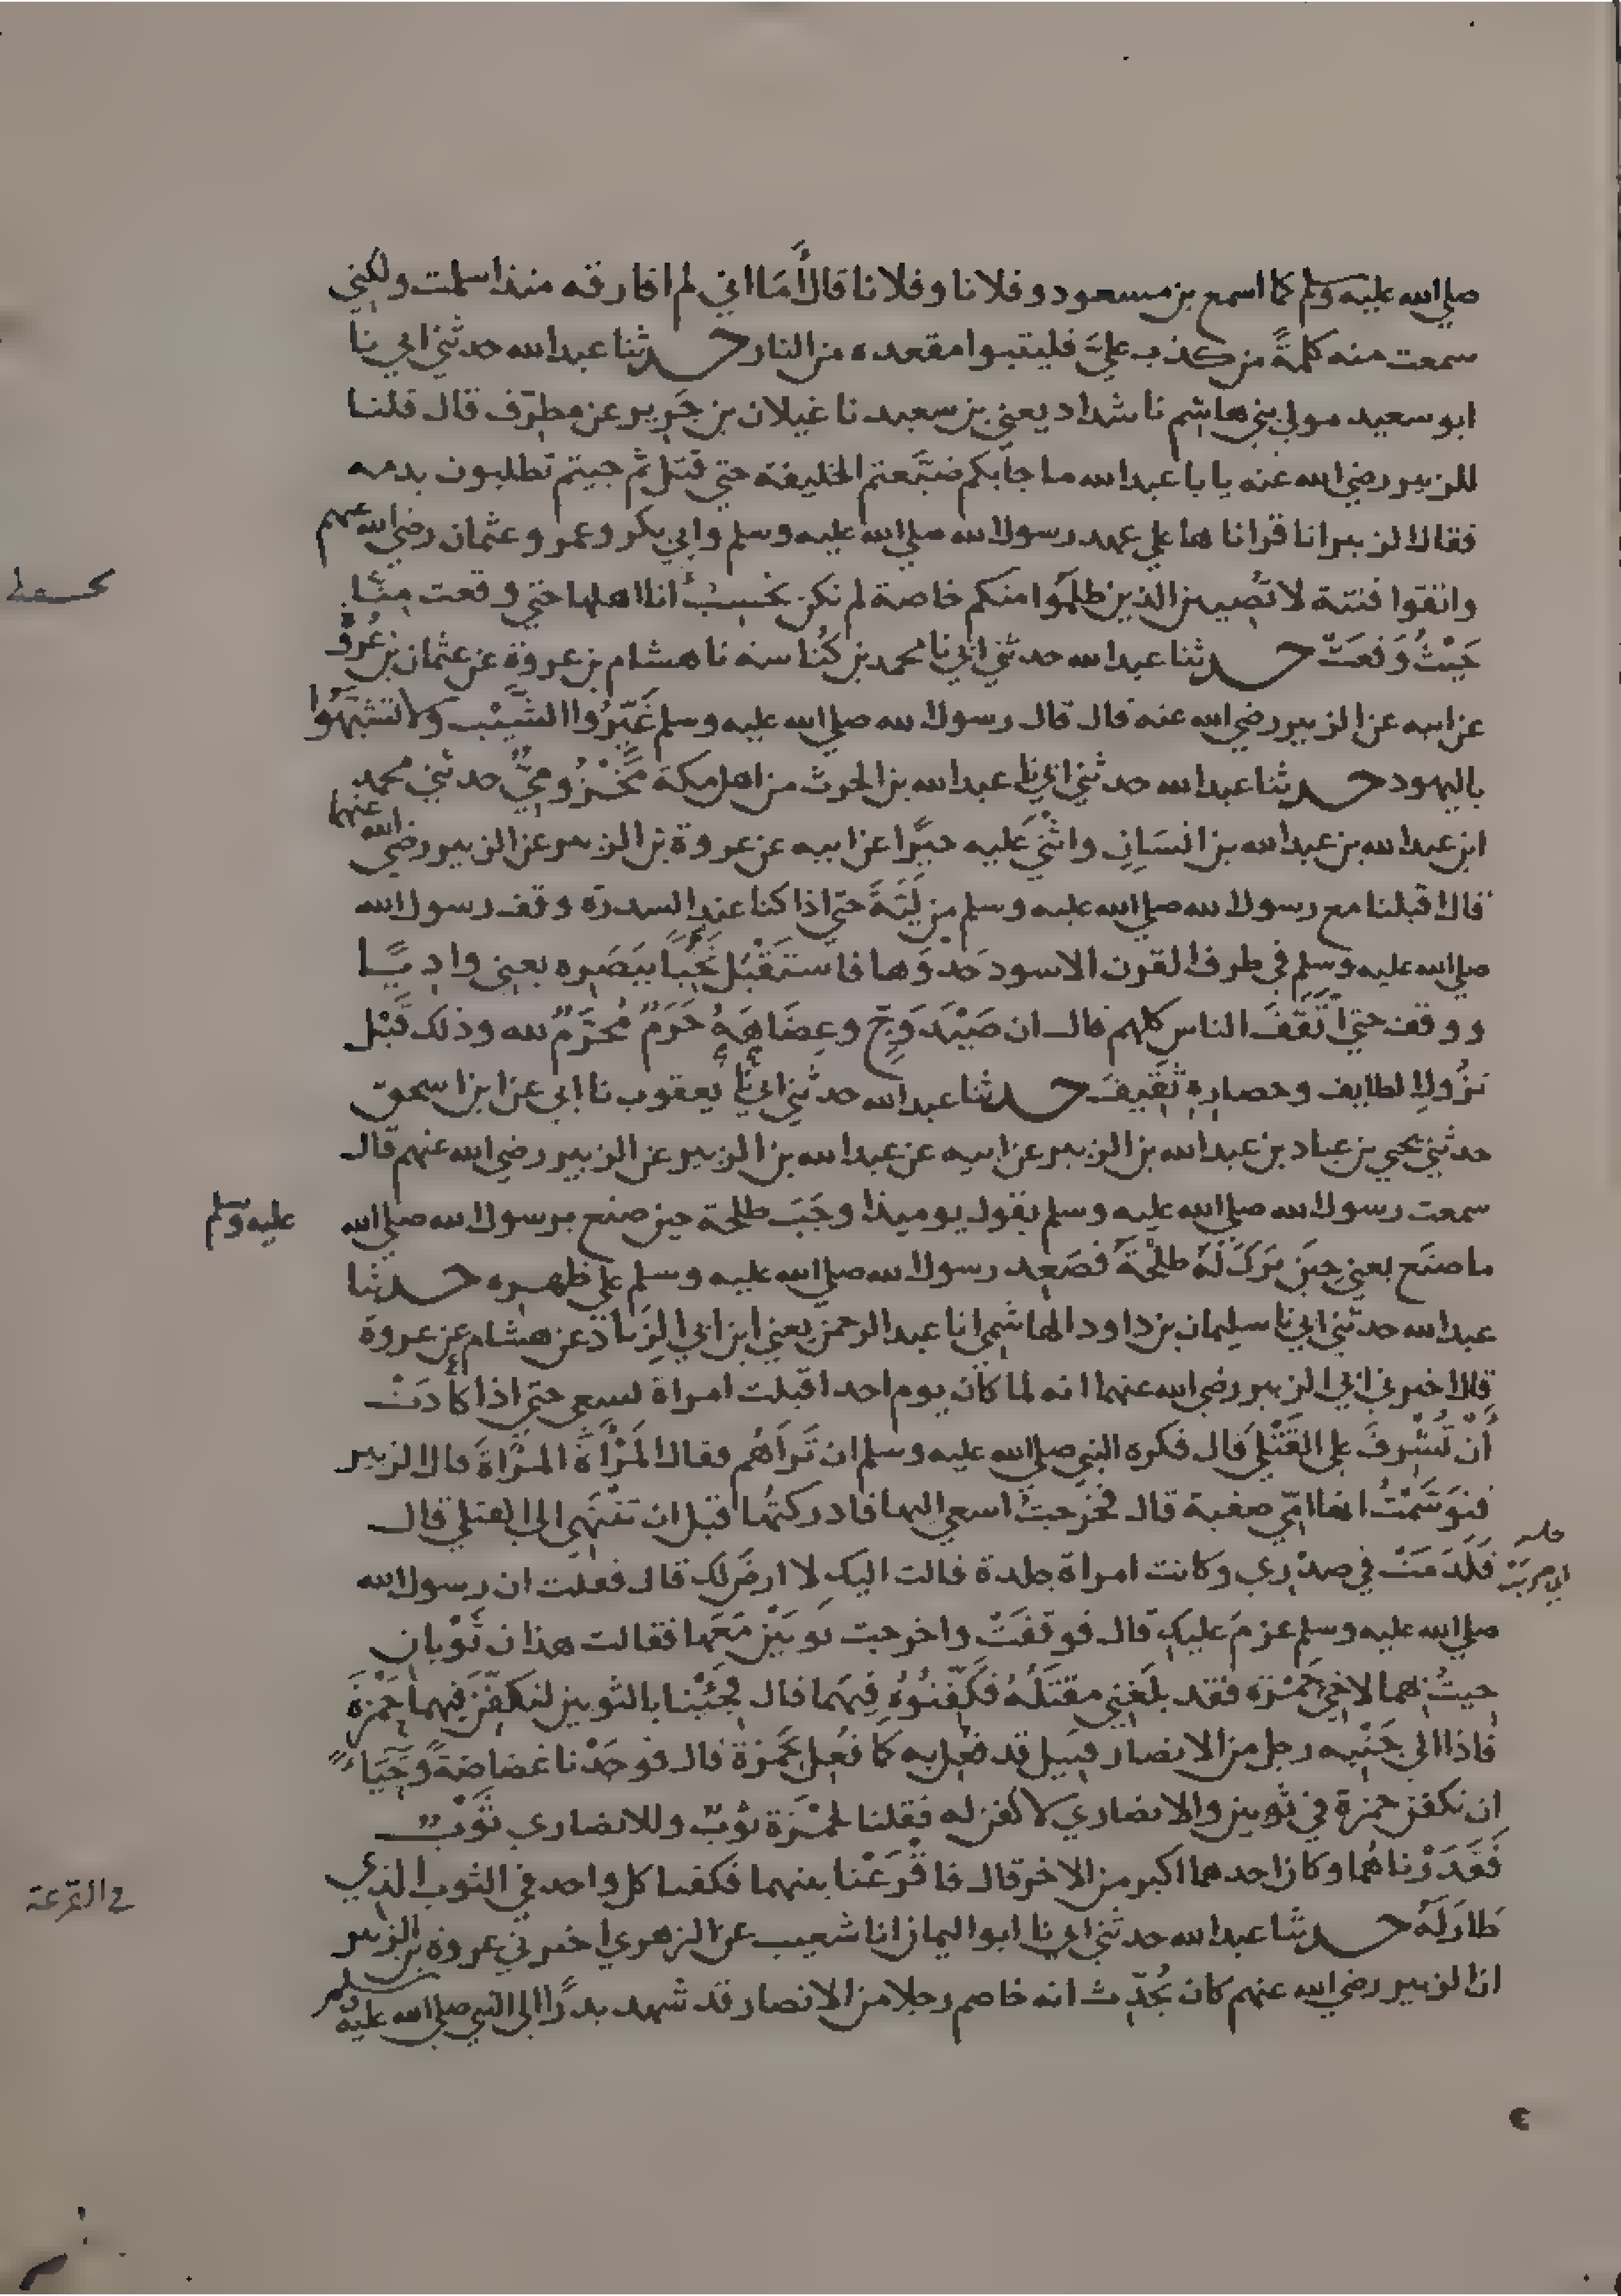 صلى الله عليه وسلم كما اسمع بن مسعود وفلانا وفلانا قال أما اني لم افارقه منذ اسلمت ولكني
سمعت منه كلمةً من كذب عليَّ فليتبوا مقعده من النار حدثنا عبد الله حدثني ابي نا
ابو سعيد مولى بني هاشم نا شداد يعني بن سعيد نا غيلان بن جَرير عن مطرّف قال قلنا
للزبير رضي الله عنه يا با عبد الله ما جا بكم ضيّعتم الخليفة حتى قُتل ثم جيتم تطلبون بدمه
فقال الزبير انا قراناها على عهد رسول الله صلى الله عليه وسلم وابي بكر وعمر وعثمان رضي الله عنهم
واتقوا فتنة لا تُصيبن الذين ظلمُوا منكم خاصة لم نكن نحْسِبُ انا اهلها حتى وقعت مِنّا
حَيْثُ وَقعَتْ حدثنا عبد الله حدثني ابي نا محمد بن كُناسة نا هشام بن عروة عن عثمان بن عُروة
عن ابيه عن الزبير رضي الله عنه قال قال رسول الله صلى الله عليه وسلم غَيّرُوا الشَّيْب ولا تشبَّهُوا
باليهود حدثنا عبد الله حدثني ابي نا عبد الله بن الحرث من اهل مكة مَخْزُوميٌّ حدثني محمد
ابن عبد الله بن عبد الله بن انسَانٍ واثنى عليه خيرًا عن ابيه عن عروة بن الزبير عن الزبير رضي الله عنهما
قال اقبلنا مع رسول الله صلى الله عليه وسلم من لِيَّةَ حتى اذا كنا عند السدرة وقف رسول الله
صلى الله عليه وسلم في طرف القرن الاسود حَذوَها فاستَقْبَل نَخِبًا ببَصَره يعني واديًا
ووقف حتى اتَّقَفَ الناس كلهم قال ان صَيْدَ وَجّ وعِضَاهَهُ حَرَمٌ مُحَرَّمٌ لله وذلك قَبْل
نزُولِه الطايف وحصاره ثَقيفَ حدثنا عبد الله حدثني ابي نا يعقوب نا ابي عن ابن اسحق
حدثني يحيى بن عباد بن عبد الله بن الزبير عن ابيه عن عبد الله بن الزبير عن الزبير رضي الله عنهم قال
سمعت رسول الله صلى الله عليه وسلم يقول يوميذ اوجَبَ طلحة حين صنع برسول الله صلى الله عليه وسلم
ما صنَع يعني حِينَ بَرَكَ لَهُ طلْحَةُ فصَعِد رسول الله صلى الله عليه وسلم على ظهره حدثنا
عبد الله حدثني ابي نا سليمان بن داود الهاشمي انا عبد الرحمن يعني ابن ابي الزِنَاد عن هشام عن عروة
قال اخبرني ابي الزبير رضي الله عنهما انه لما كان يوم احد اقبلت امراة تسعى حتى اذا كادَتْ
أنْ تُشْرِفَ على القَتْلَى قال فكره النبي صلى الله عليه وسلم ان تَرَاهُم فقال المَرْأةَ المَرْأةَ قال الزبير
فتوَسَّمْتُ انها امّي صفية قال فخرَجتُ اسعى اليها فادركتُها قبل ان تنْتَهِي الى القتلى قال
فَلَدَمَتْ في صدْري وكانت امراة جلدة قالت اليك لا ارضَ لك قال فقلت ان رسول الله
صلى الله عليه وسلم عزمَ عليكِ قال فوقفَتْ واخرجت ثوبَيْن مَعَها فقالت هذان ثَوْبان
جيتُ بهما لاخي حَمْزة فقد بلَغَني مقتَلُهُ فكَفّنُوهُ فيهَما قال فجِئْنا بالثوبين لنكفّنَ فيهما حَمْزةَ
فاذا الى جَنْبه رجل من الانصار قتِيل قد فُعِل به كما فُعِل بحَمزة قال فوجَدْنا غضاضةً وحَيَاءً
ان نكفن حمزة في ثوبين والانصاري لا كفن له فقلنا لحَمْزة ثوْبٌ وللانصاري ثَوْبٌ
فَقَدَرْناهُما وكان احدهما اكبر من الاخر قال فاقْرَعْنا بينهما فكفنا كل واحد في الثوب الذي
طارَ لَهُ حدثنا عبد الله حدثني ابي نا ابو اليمان انا شعيب عن الزهري اخبرني عروة بن الزبير
ان الزبير رضي الله عنهم كان يُحَدّث انه خاصم رجلا من الانصار قد شهد بدرًا الى النبي صلى الله عليه وسلم
في القرعة